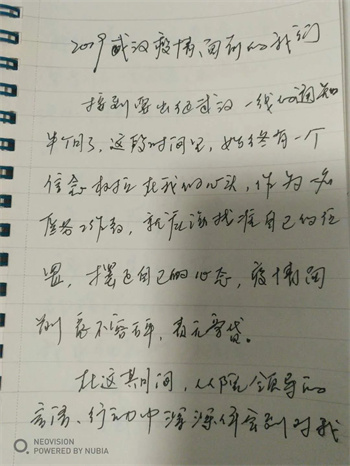 2019武汉疫情、面前的我们
接到要出征武汉一线的通知
半个月了,这段时间里,始终有一个
信念树立在我的心头,作为一名
医务工作者,就应该找准自己的位
置,摆正自己的心态,疫情面
前 义不容辞,责无旁贷。
在这期间,从院领导的
言语、行动中深深体会到对我
NEOVISION
POWERED BY NUBIA